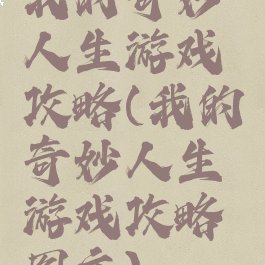 我的奇妙
人生游戏
攻略(我的
奇妙人生
游戏攻略